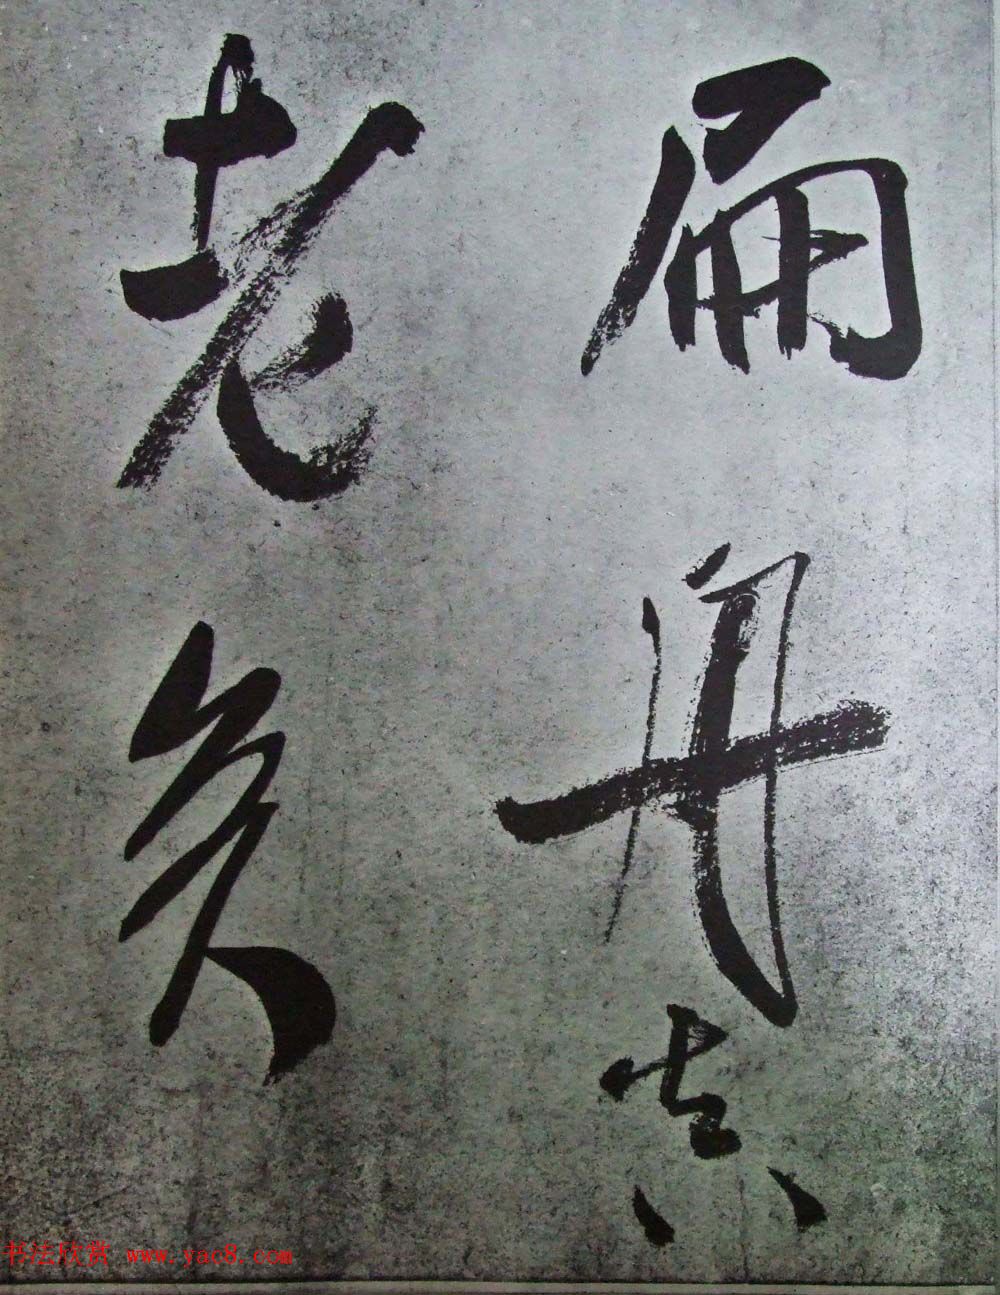 扁舟真
老矣
书法欣赏 www.yac8.com